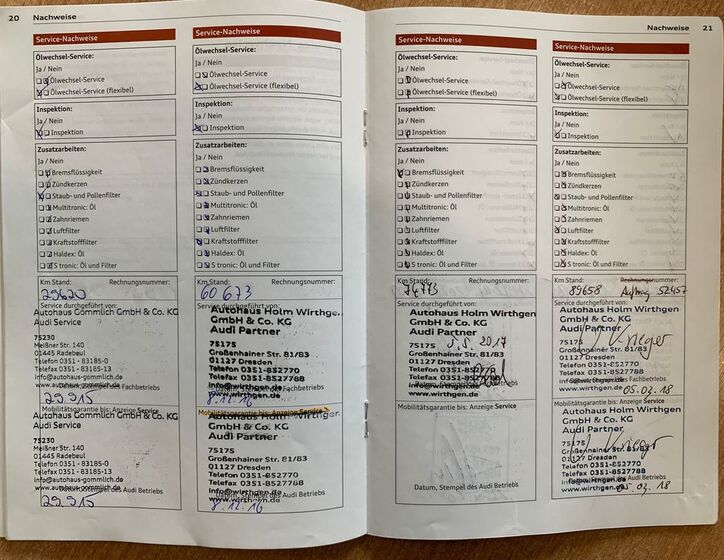 20 Nachweise
Service-Nachweise
Ölwechsel-Service:
Ja / Nein
Ölwechsel-Service
Ölwechsel-Service (flexibel)
Inspektion:
Ja / Nein
Inspektion
Zusatzarbeiten:
Ja / Nein
Bremsflüssigkeit
Zündkerzen
Staub- und Pollenfilter
Multitronic: Öl
Zahnriemen
Luftfilter
Kraftstofffilter
Haldex: Öl
S tronic: Öl und Filter
Km Stand: Rechnungsnummer:
Service durchgeführt von:
Autohaus Gommlich GmbH & Co. KG
Audi Service
75230
Meißner Str. 140
01445 Radebeul
Telefon 0351 - 83185-0
Telefax 0351 - 83185-13
info@autohaus-gommlich.de
www.autohaus-gommlich.de
Autohaus Gommlich GmbH & Co. KG
Audi Service
75230
Meißner Str. 140
01445 Radebeul
Telefon 0351 - 83185-0
Telefax 0351 - 83185-13
info@autohaus-gommlich.de
www.autohaus-gommlich.de
Datum, Stempel des Audi Betriebs
Service-Nachweise
Ölwechsel-Service:
Ja / Nein
Ölwechsel-Service
Ölwechsel-Service (flexibel)
Inspektion:
Ja / Nein
Inspektion
Zusatzarbeiten:
Ja / Nein
Bremsflüssigkeit
Zündkerzen
Staub- und Pollenfilter
Multitronic: Öl
Zahnriemen
Luftfilter
Kraftstofffilter
Haldex: Öl
S tronic: Öl und Filter
Km Stand: Rechnungsnummer:
60 673
Service durchgeführt von:
Autohaus Holm Wirthgen
GmbH & Co. KG
Audi Partner
75175
Großenhainer Str. 81/83
01127 Dresden
Telefon 0351-852770
Telefax 0351-8527788
info@wirthgen.de
www.wirthgen.de
8.12.16
Mobilitätsgarantie bis: Anzeige Service
Autohaus Holm Wirthgen
GmbH & Co. KG
Audi Partner
75175
Großenhainer Str. 81/83
01127 Dresden
Telefon 0351-852770
Telefax 0351-8527788
info@wirthgen.de
www.wirthgen.de
8.12.16
Nachweise 21
Service-Nachweise
Ölwechsel-Service:
Ja / Nein
Ölwechsel-Service
Ölwechsel-Service (flexibel)
Inspektion:
Ja / Nein
Inspektion
Zusatzarbeiten:
Ja / Nein
Bremsflüssigkeit
Zündkerzen
Staub- und Pollenfilter
Multitronic: Öl
Zahnriemen
Luftfilter
Kraftstofffilter
Haldex: Öl
S tronic: Öl und Filter
Km Stand: Rechnungsnummer:
Service durchgeführt von:
Autohaus Holm Wirthgen
GmbH & Co. KG
Audi Partner
5.5.2017
75175
Großenhainer Str. 81/83
01127 Dresden
Telefon 0351-852770
www.wirthgen.de
Mobilitätsgarantie bis: Anzeige Service
Datum, Stempel des Audi Betriebs
Service-Nachweise
Ölwechsel-Service:
Ja / Nein
Ölwechsel-Service
Ölwechsel-Service (flexibel)
Inspektion:
Ja / Nein
Inspektion
Zusatzarbeiten:
Ja / Nein
Bremsflüssigkeit
Zündkerzen
Staub- und Pollenfilter
Multitronic: Öl
Zahnriemen
Luftfilter
Kraftstofffilter
Haldex: Öl
S tronic: Öl und Filter
Km Stand: Rechnungsnummer:
89658 Auftrag 52457
Service durchgeführt von:
Autohaus Holm Wirthgen
GmbH & Co. KG
Audi Partner
Krieger
75175
Großenhainer Str. 81/83
01127 Dresden
Telefon 0351-852770
Telefax 0351-8527788
www.wirthgen.de
05.02.18
Mobilitätsgarantie bis: Anzeige Service
Autohaus Holm Wirthgen
GmbH & Co. KG
Audi Partner
Krieger
75175
Großenhainer Str. 81/83
01127 Dresden
Telefon 0351-852770
Telefax 0351-8527788
info@wirthgen.de
www.wirthgen.de
05.02.18